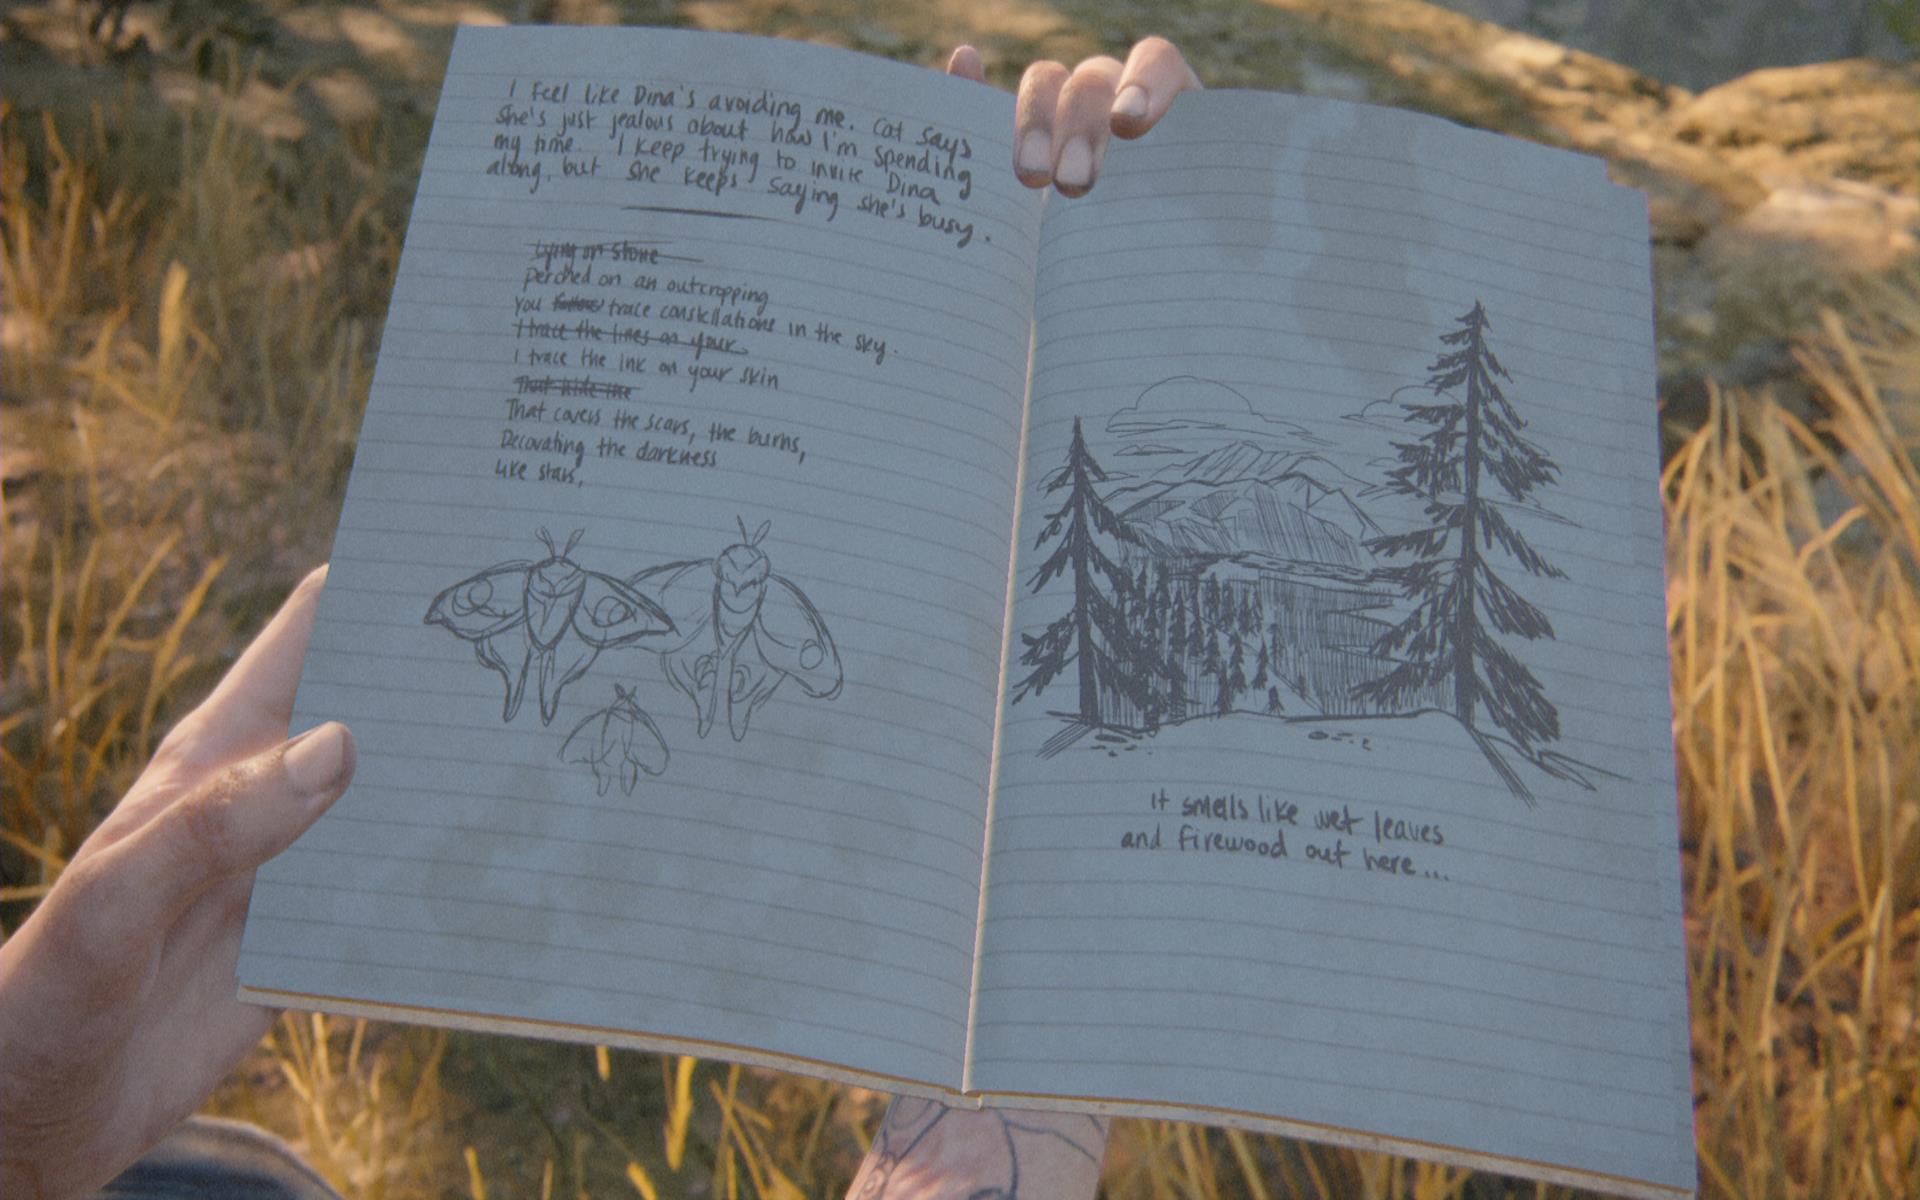 I feel like Dina's avoiding me. Cat says
she's just jealous about how I'm spending
my time. I keep trying to invite Dina
along, but she keeps saying she's busy.
Lying on stone
perched on an outcropping
You follow trace constellations in the sky.
I trace the lines on your
I trace the ink on your skin
That hide the
That covers the scars, the burns,
Decorating the darkness
Like stars,
It smells like wet leaves
and firewood out here...